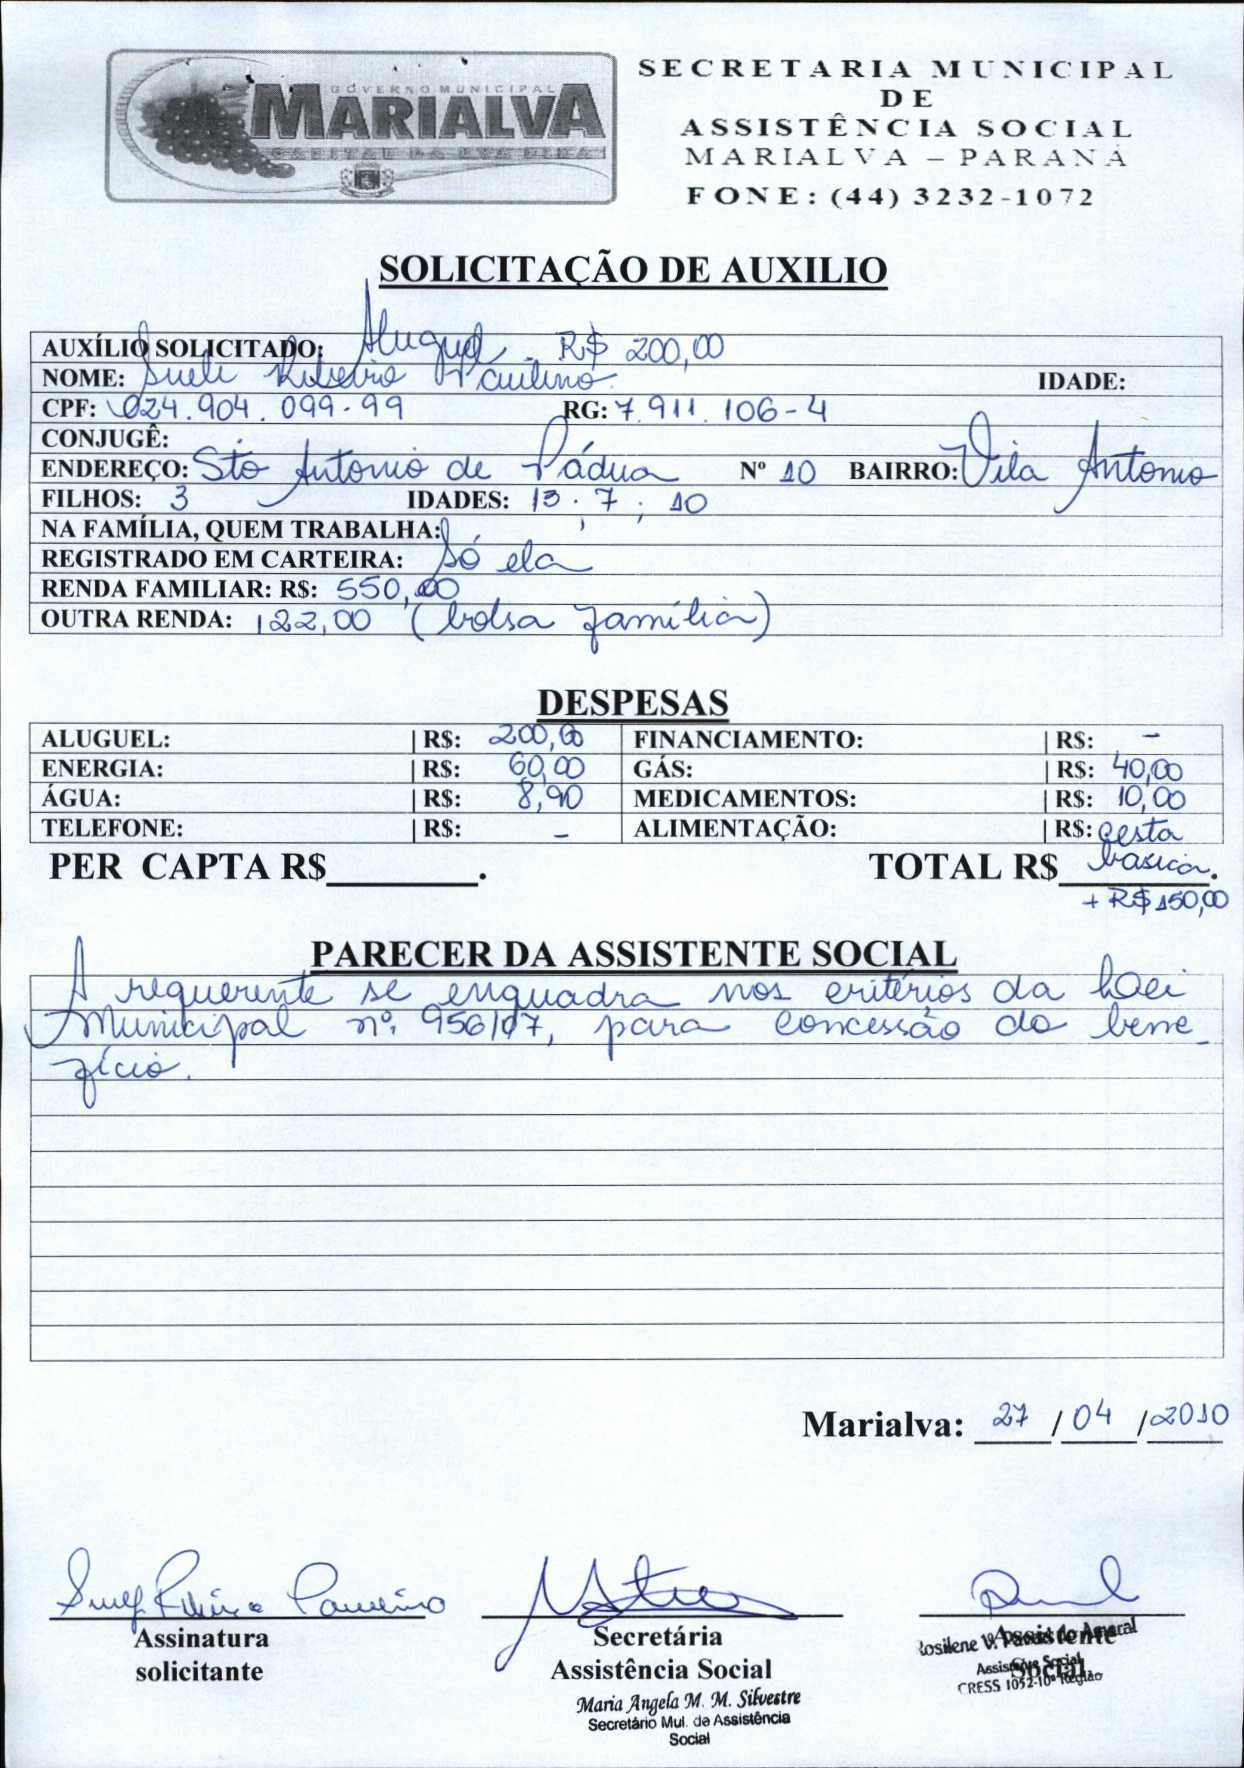 GOVERNO MUNICIPAL
MARIALVA
CAPITAL DA UVA FINA
SECRETARIA MUNICIPAL
DE
ASSISTÊNCIA SOCIAL
MARIALVA – PARANÁ
FONE: (44) 3232-1072
SOLICITAÇÃO DE AUXILIO
AUXÍLIO SOLICITADO: Aluguel - R$ 200,00
NOME: Sueli Ribeiro Paulino. IDADE:
CPF: 024.904.099-99 RG: 7.911.106-4
CONJUGÊ:
ENDEREÇO: Sto Antonio de Pádua Nº 10 BAIRRO: Vila Antonio
FILHOS: 3 IDADES: 13; 7; 10
NA FAMÍLIA, QUEM TRABALHA:
REGISTRADO EM CARTEIRA: Só ela
RENDA FAMILIAR: R$: 550,00
OUTRA RENDA: 122,00 (bolsa família)
DESPESAS
ALUGUEL: | R$: 200,00 FINANCIAMENTO: | R$: -
ENERGIA: | R$: 60,00 GÁS: | R$: 40,00
ÁGUA: | R$: 8,90 MEDICAMENTOS: | R$: 10,00
TELEFONE: | R$: - ALIMENTAÇÃO: | R$: cesta
PER CAPTA R$________. TOTAL R$ básica.
+ R$ 150,00
PARECER DA ASSISTENTE SOCIAL
A requerente se enquadra nos critérios da Lei
Municipal nº. 956/07, para concessão do bene_
fício.
Marialva: 27 / 04 / 2010
Assinatura
solicitante
Secretária
Assistência Social
Maria Angela M. M. Silvestre
Secretário Mul. de Assistência
Social
Assistente
Social
Rosilene V. do Amaral
Assistente Social
CRESS 1052-10ª Região